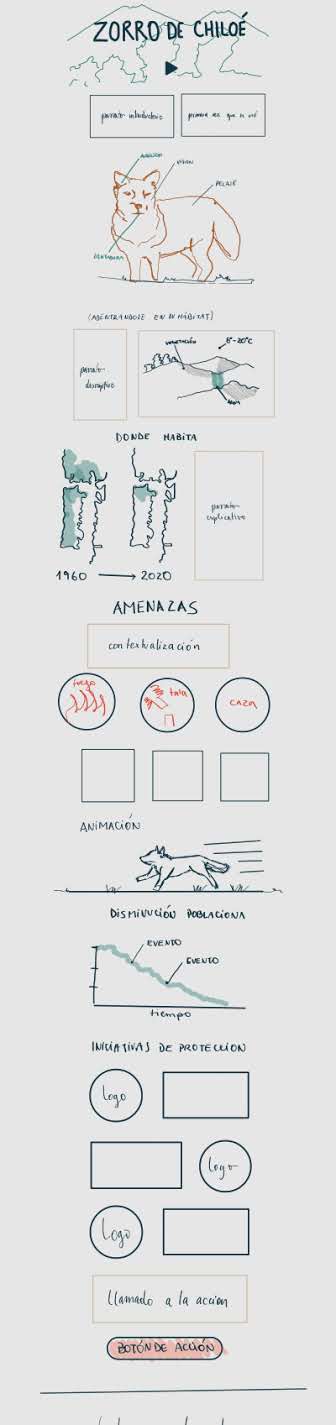 ZORRO DE CHILOÉ
párrafo introductorio
primera vez que se vió
PELAJE
(ADENTRANDOSE EN SU HÁBITAT)
VEGETACIÓN
8°-20°C
párrafo
descriptivo
DONDE HABITA
párrafo
explicativo
1960 → 2020
AMENAZAS
contextualización
fuego
tala
CAZA
ANIMACIÓN
DISMINUCIÓN POBLACIONA
EVENTO
EVENTO
tiempo
INICIATIVAS DE PROTECCIÓN
Logo
Logo
Logo
llamado a la acción
BOTÓN DE ACCIÓN